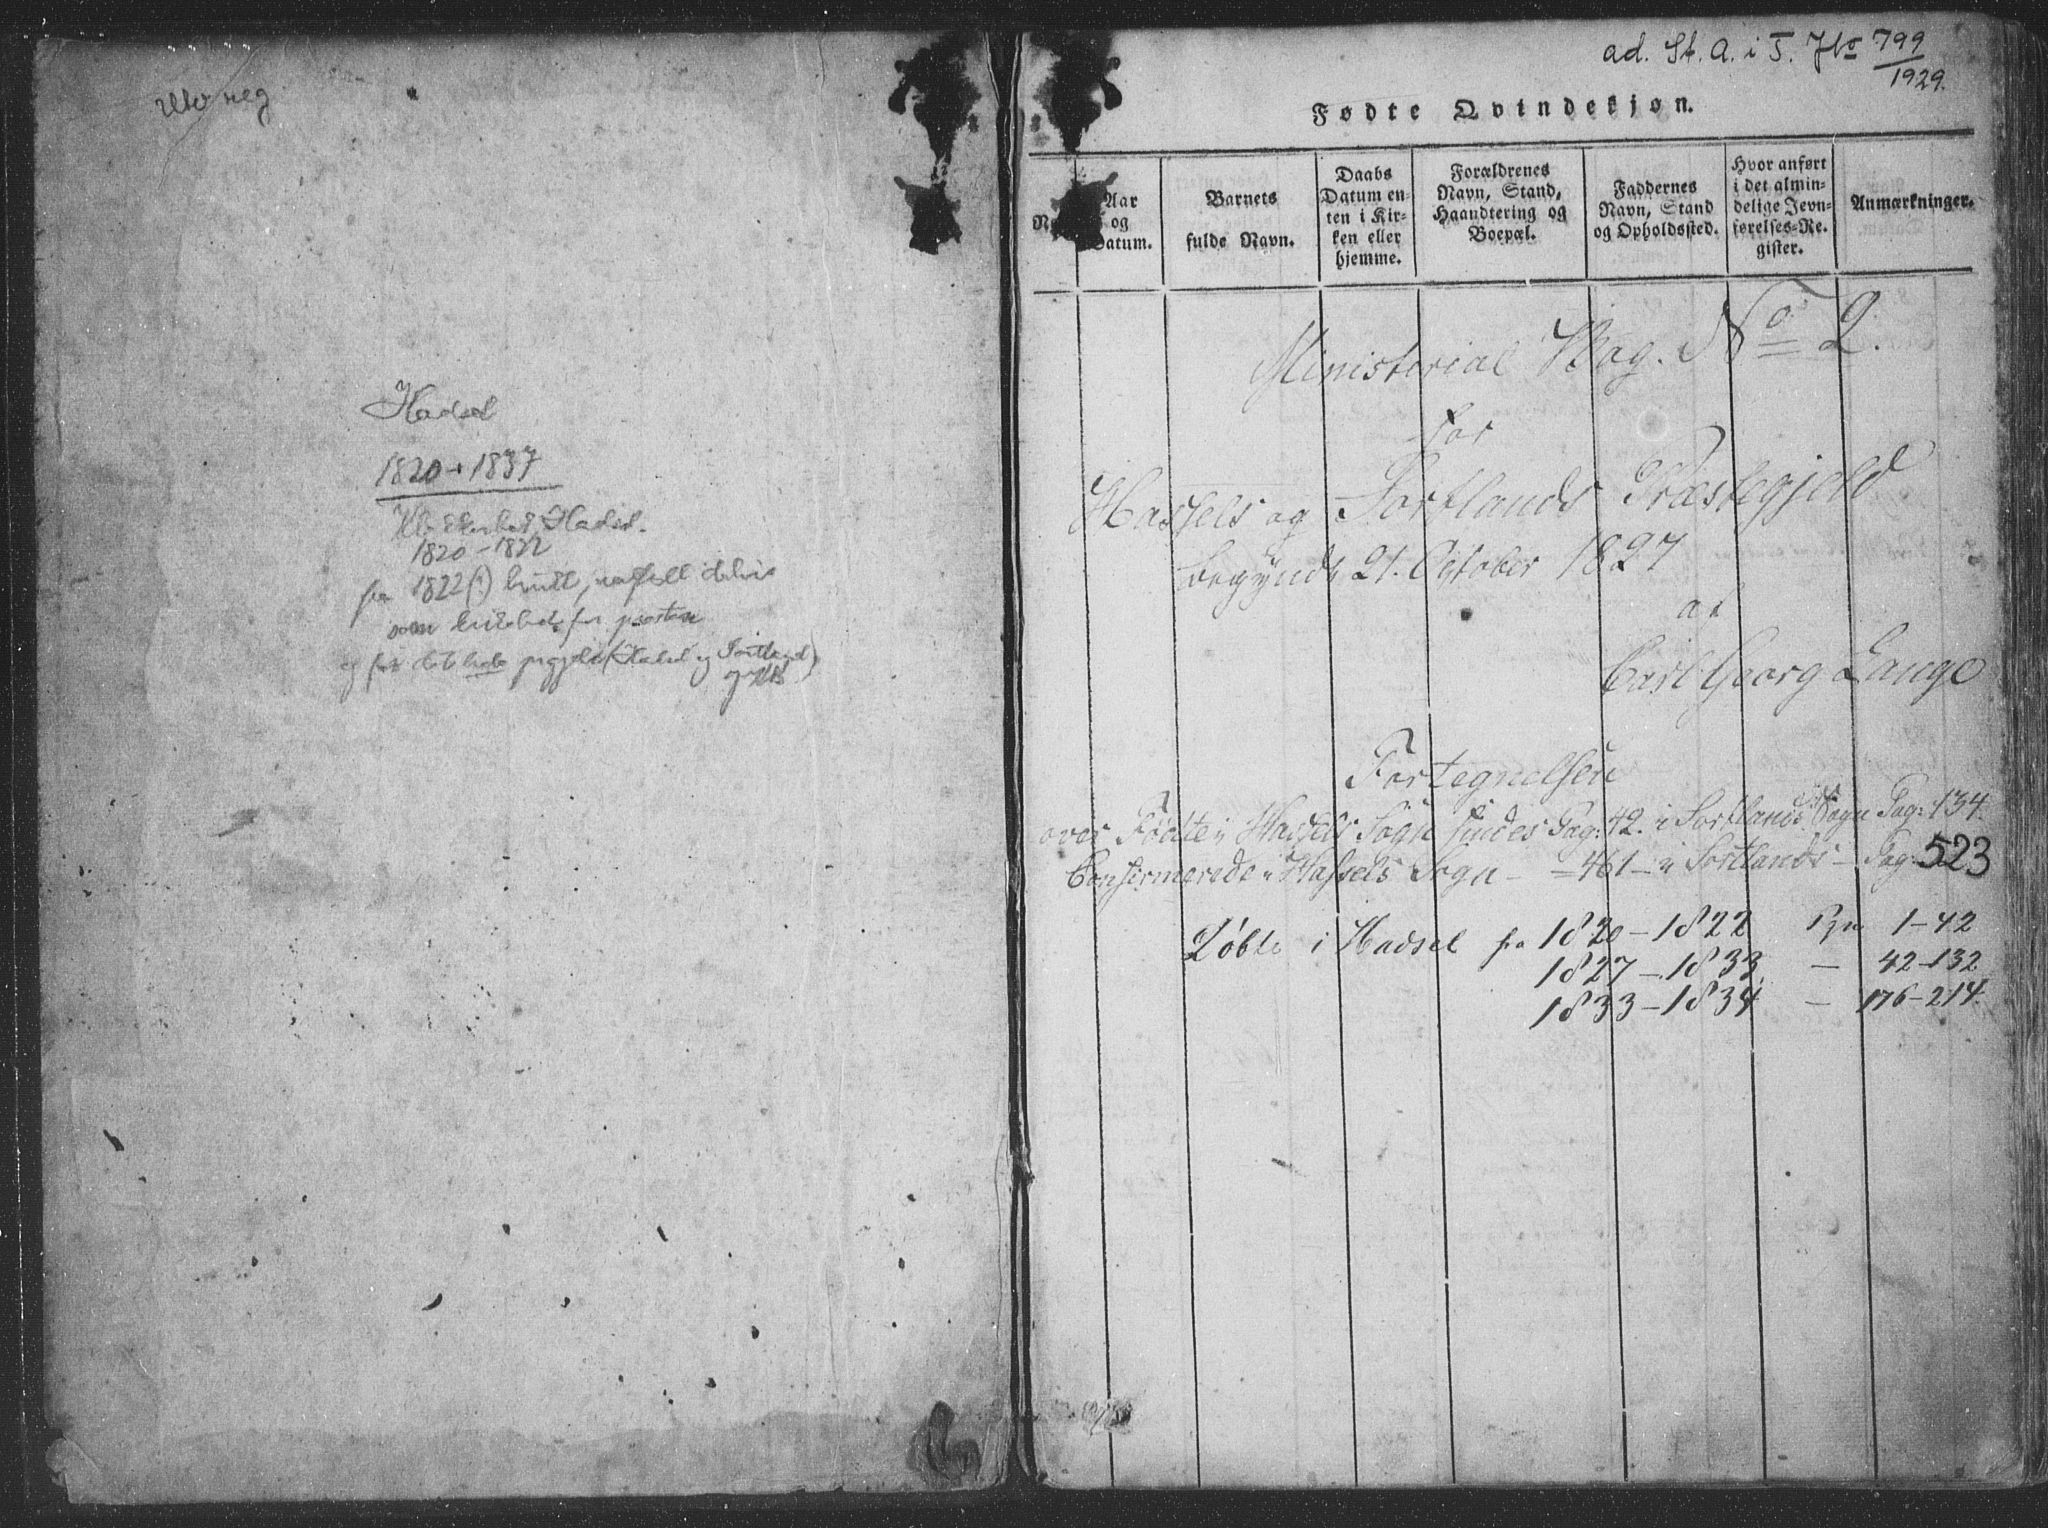 Hadsel
1820 - 1837
Klokkerbok, Hadsel.
1820 - 1822
fra 1822(?) brukt,
som kirkebok for presten
og for det hele prgjeld (Hadsel og Sortland)
ad. St. A. i T. JNo 799/1929.
Fødte Qvindekjøn.
Aar og Datum.
Barnets fulde Navn.
Daabs Datum enten i Kirken eller hjemme.
Forældrenes Navn, Stand, Haandtering og Boepæl.
Faddernes Navn, Stand og Opholdssted.
Hvor anført i det almindelige Jevnførelses-Register.
Anmærkninger.
Ministerial Bog. No 2.
for
Hassels og Sortlands Præstegjeld
begyndt 21. October 1827
af
Carl Georg Lange
Fortegnelsen
over Fødte i Hassels Sogn findes Pag: 42. i Sortlands Sogn Pag: 134.
Confirmerede i Hassels Sogn - = 461 - i Sortlands - Pag: 523
Døbte i Hadsel fra 1820 - 1822 Pgn 1-42
1827 - 1833 - 42-132
1833 - 1834 - 176-214.